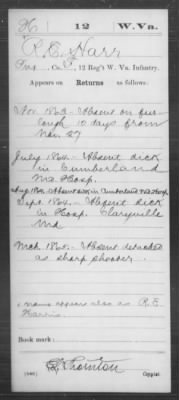 H | 12 | W. Va.
R. E. Harr
Co. F, 12 Reg't W. Va. Infantry.
Appears on Returns as follows:
Nov. 1863 - Absent on fur-
lough 10 days from
Nov. 27
July 1864 - Absent sick
in Cumberland
Md. Hosp.
Aug. 1864 Absent sick in Cumberland Md. Hosp.
Sept. 1864 - Absent sick
in Hosp. Claryville
Md
Mch. 1865 - Absent detached
as sharp shooter.
name appears also as R. E.
Harris.
Book mark:
Thornton
(546) Copyist.